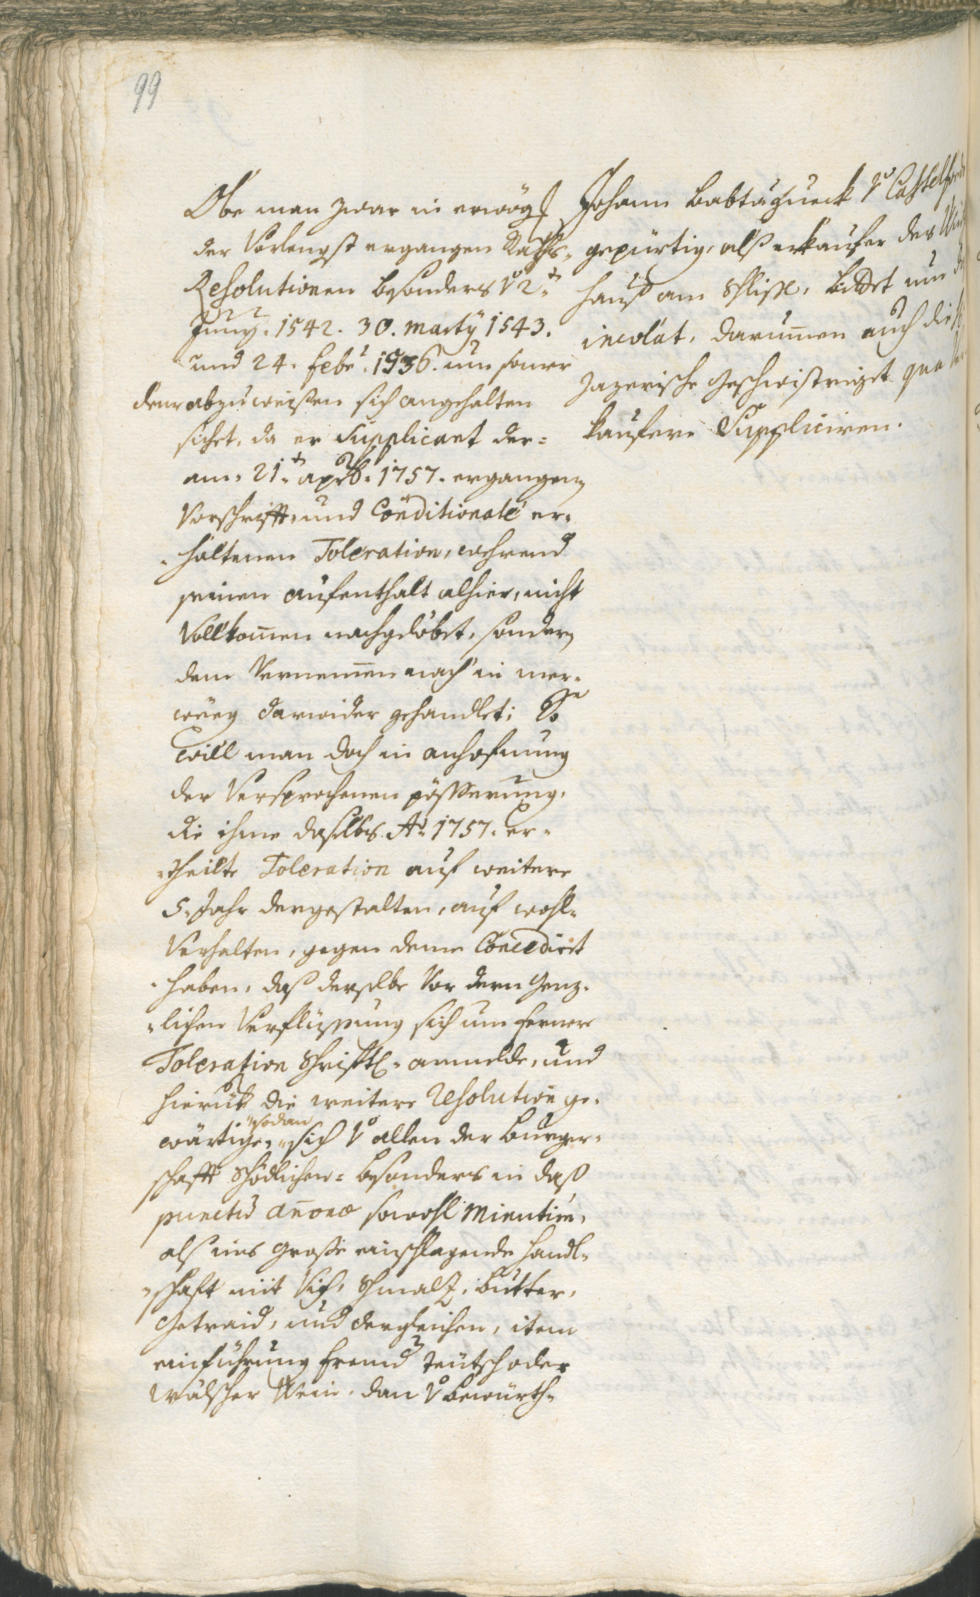 99
Obe man zwar in erwög
der Vorlengst ergangen Raths-
Resolutionen besonders V 2t
Juny. 1542. 30. marty 1543.
und 24. febr. 1936. um
deme abzuweisen sich angehalten
sichet, da er Supplicant der-
am 21t april. 1757. ergangen
Vorschrifft und Conditionate er-
haltenen Toleration, wehrend
seinen aufenthalt alhier, nicht
Vollkommen nachgelobet, sondern
dem Vernemmen nach in mer-
weeg darwider gehandlet; So
will man doch in anhofnung
der Versprochenen pösserung,
die ihme daselbs Ao 1757. er-
theilte Toleration auf weitere
5. Jahr dergestalten, auf wohl-
Verhalten, gegen deme Concedirt
haben, daß derselbe Vor dem Genz-
lichen Verflüssung sich um ferner
Toleration Schriftl. anmelde, und
hieruf die weitere Resolution ge-
wärtige, sodan sich V allen der Burger-
schafft schödlichen- besonders in daß
punctu Annonae sowohl Minutim,
als ins Große einschlagende handl-
schafft mit Vich, Schmalz, Butter,
Getraid, und dergleichen, item
einführung fremd Teutsch oder
Wälscher Wein, dan V bewürth-
Johann Babta V
gepürtig, als erkaufer des
hauß am bittet um
incolat, darummen auch die
Geschwistriget qua
kaufere Suppliciren.